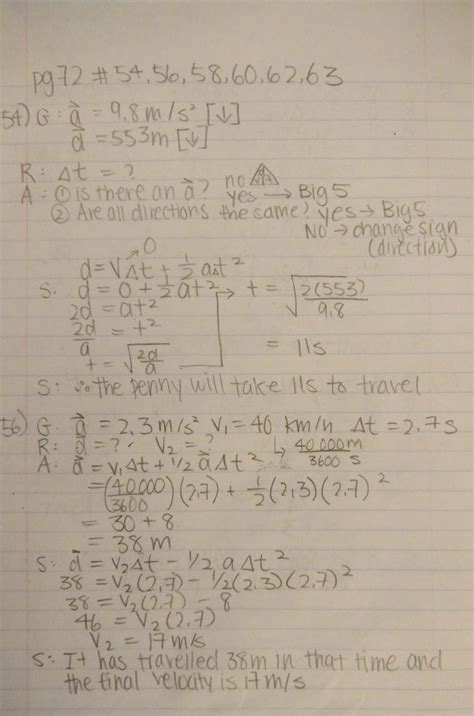 pg 72 # 54, 56, 58, 60, 62, 63
54) G: a⃗ = 9,8 m/s² [↓]
d⃗ = 553 m [↓]
R: Δt = ?
A: ① is there an a⃗? no
yes → Big 5
② Are all directions the same? yes → Big 5
No → change sign (direction)
0
d = V₁Δt + ½ aΔt²
S: d = 0 + ½ at² → t = √(2(553)/9.8)
2d = at²
2d/a = t²
= 11s
t = √(2d/a)
S: ∴ the penny will take 11s to travel
56) G: a⃗ = 2.3 m/s² V₁ = 40 km/h Δt = 2.7 s
R: d⃗ = ? V₂ = ? ↳ 40 000 m / 3600 s
A: d⃗ = V₁Δt + ½ a⃗Δt²
= (40 000/3600)(2,7) + ½(2,3)(2.7)²
= 30 + 8
= 38 m
S: d⃗ = V₂Δt - ½ aΔt²
38 = V₂(2,7) - ½(2,3)(2,7)²
38 = V₂(2.7) - 8
46 = V₂(2.7)
V₂ = 17 m/s
S: It has travelled 38m in that time and
the final velocity is 17 m/s